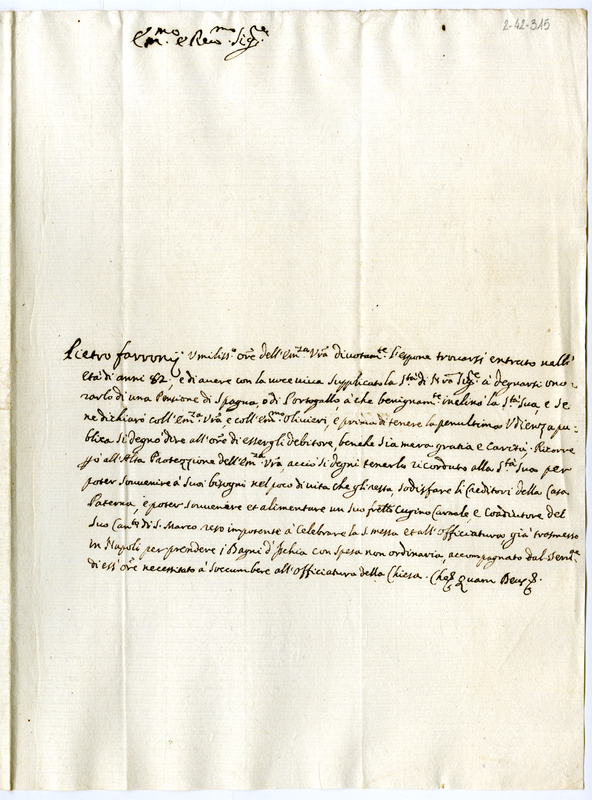 2-42-315
Em.mo e Rev.mo Sig.e
Pietro Farronij Umiliss.o ore dell'Em.za Vra divotam.te l'espone trovarsi entrato nell'
età di anni 82, e di avere con la voce viva supplicato la S.tà di Nro Sig.e à degnarsi ono-
rarlo di una Pensione di Spagna, o di Portogallo, à che benignam.te inclinò la S.tà Sua, e se
ne dichiarò coll'Em.za Vra e coll'Em.mo Olivieri, e prima di tenere la penultima Udienza pu-
blica si degnò dire all'ore di essergli debitore, benche sia mera gratia e Carità. Ricorre
all'Alta Protezzione dell'Em.za Vra, acciò si degni tenerlo ricordato alla S.tà Sua per
poter souvenire à Suoi bisogni nel poco di vita che gli resta, sodisfare li Creditori della Casa
Paterna, e poter souvenire et alimentare un Suo fratello Cugino Carnale, e Coadiutore del
Suo Can.to di S. Marco reso impotente à Celebrare la S. messa et all'Officiatura già trasmesso
in Napoli per prendere i Bagni d'Ischia con spesa non ordinaria, accompagnato dal
di ess' ore necessitato à soccumbere all'Officiatura della Chiesa. Che quam Deus